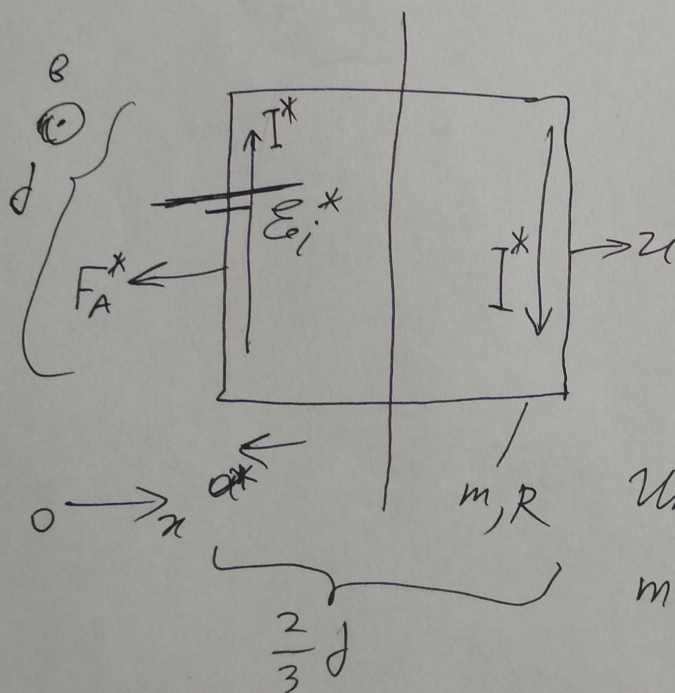 B
d
I*
ℰᵢ*
F_A*
I*
u
a*
0
x
m, R
u
m
2/3 d